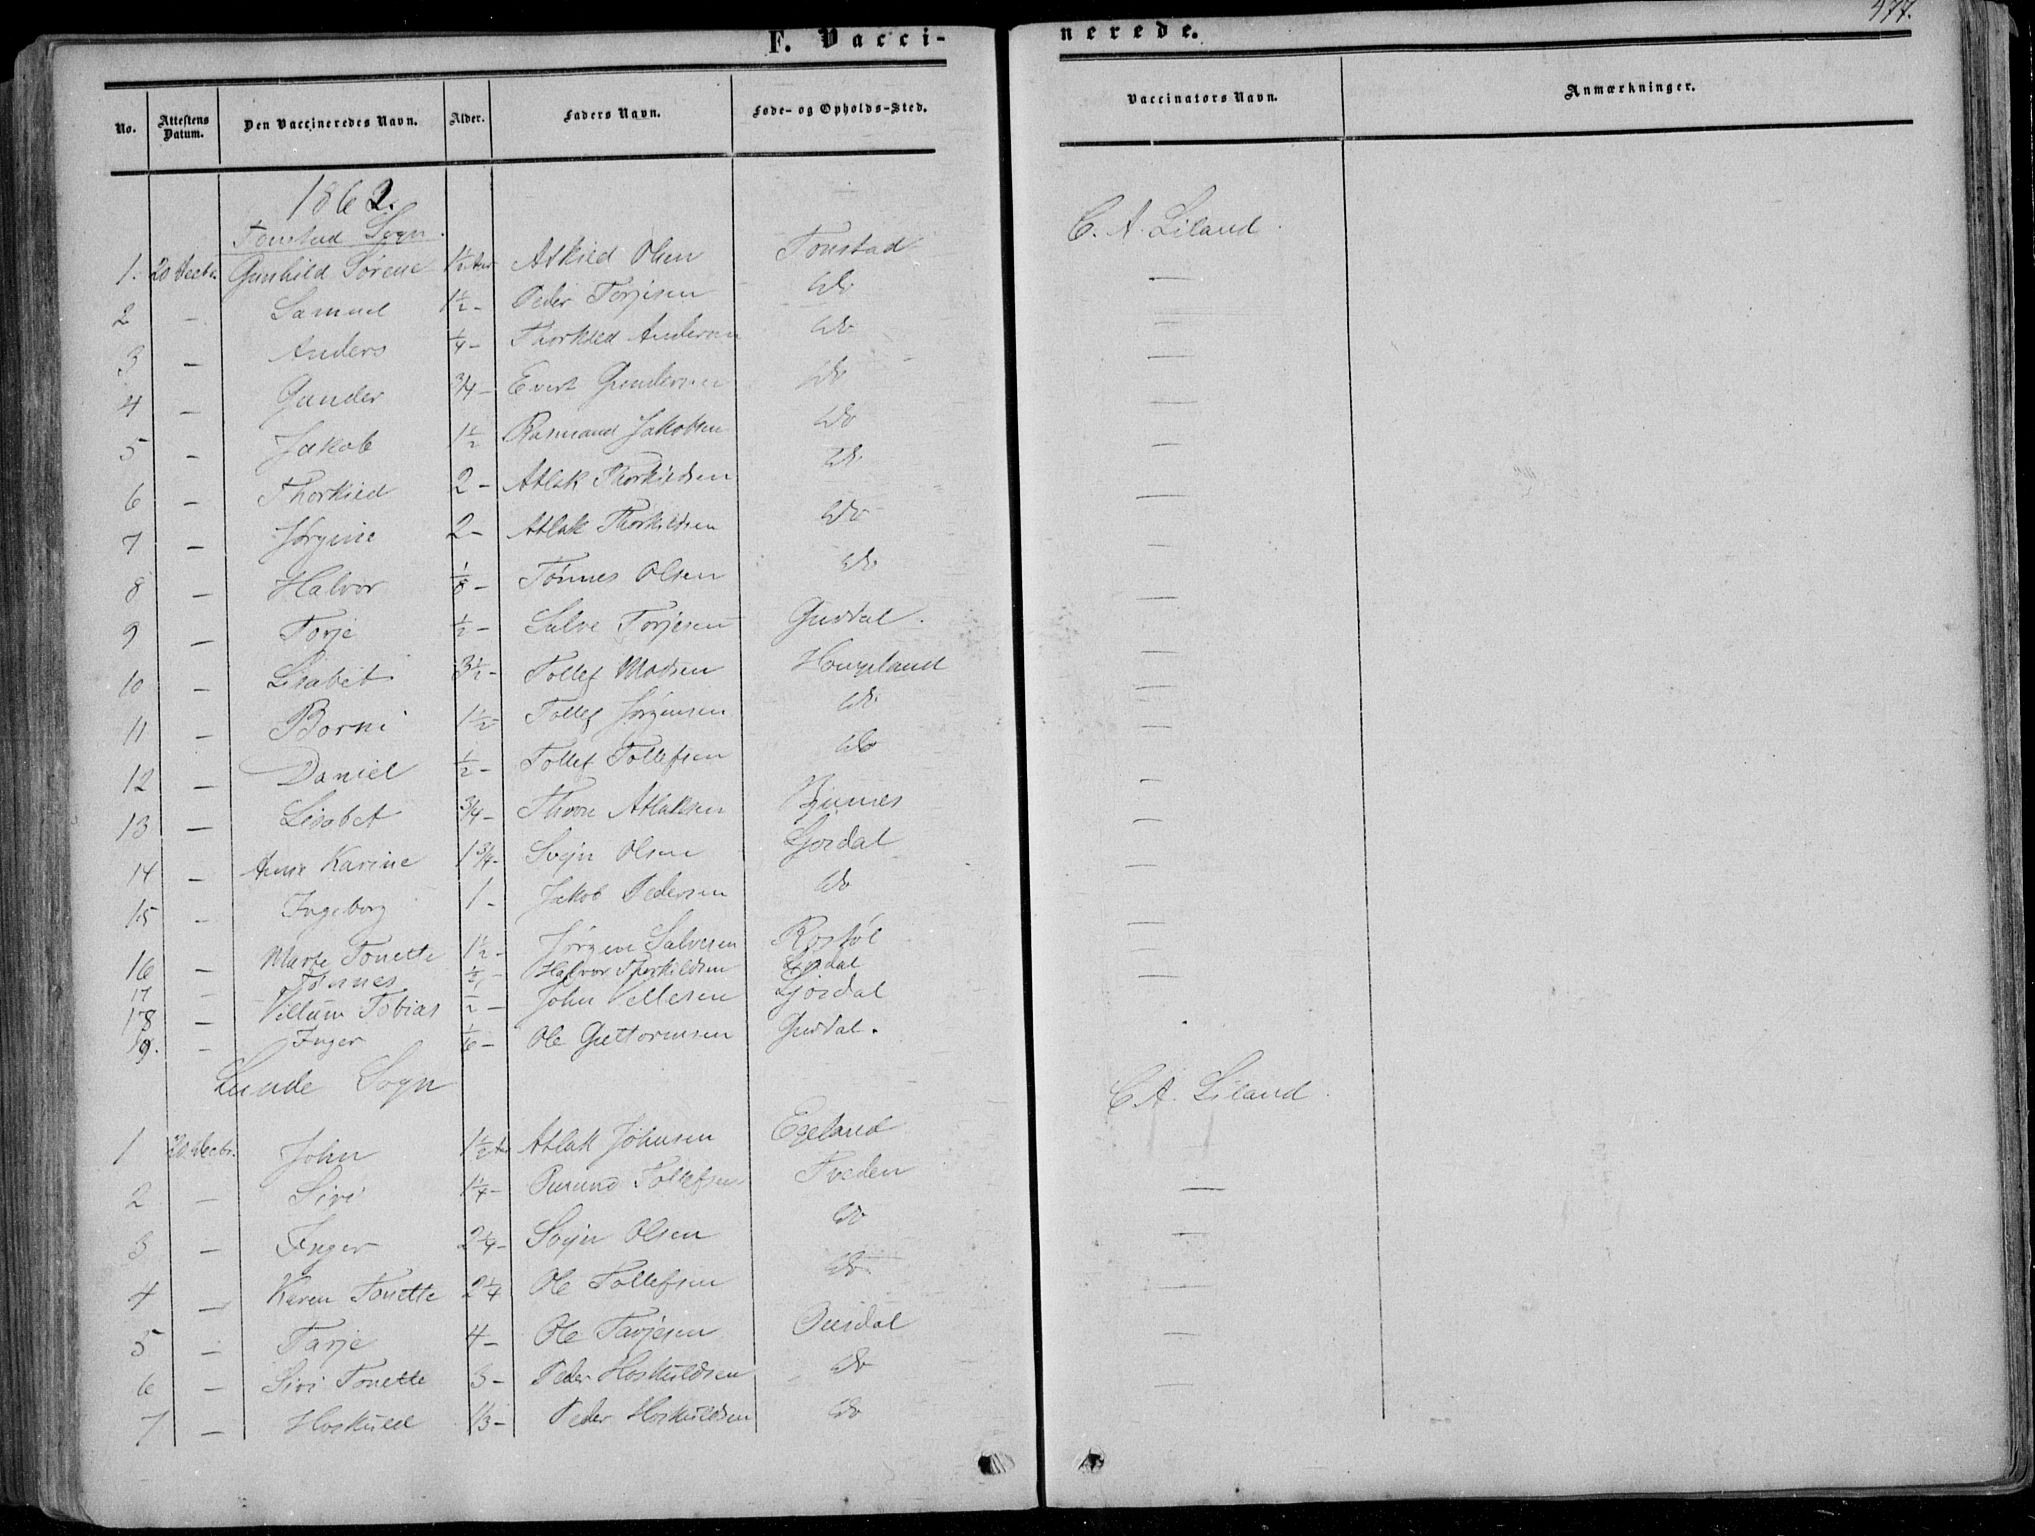 F. Vaccinerede.
477.
No. Attestens Datum. Den Vaccineredes Navn. Alder. Faders Navn. Føde- og Opholds-Sted. Vaccinators Navn. Anmærkninger.
1862.
Tonstad Sogn.
1. 20 Decbr. Gunhild Sørene 1½ Aar Atkild Olsen Tonstad C. A. Liland.
2 – Samuel 1½ – Peder Torjesen Do —
3 – Anders ¼ – Thorkild Andersen Do —
4 – Gunder ¾ – Evert Gundersen Do —
5 – Jakob 1½ Rasmund Jakobsen Do —
6 – Thorkild 2 – Atlak Thorkildsen Do —
7 – Jørgine 2 – Atlak Thorkildsen Do —
8 – Halvor ⅛ – Tönnes Olsen Do —
9 – Torje ½ – Salve Torjesen Gusdal. —
10 – Lisabet 3½ – Tollef Madsen Hougeland —
11 – Borni 1½ Tollef Jørgensen Do —
12 – Daniel ½ – Tollef Tollefsen Do —
13 – Lisabet ¾ – Thore Atlaksen —
14 – Anne Karine 1¾ – Svejn Olsen Ljosdal —
15 – Ingeborg 1 – Jakob Pedersen Do —
16 – Marte Tonette 1½ – Jörgen Salvesen Röstöl —
17 – Tönnes – Halvor Thorkildsen Ljosdal —
18 – Villum Tobias ½ – John Ljosdal —
19. – Inger ⅙ – Ole Guttormsen Gusdal.
Lunde Sogn
1 20 Decbr. John 1½ Aar Atlak Johnsen Egeland C. A. Liland.
2 – Siri 1¼ – Tollefsen Tveden —
3 – Inger 2¼ – Svejn Olsen Do —
4 – Karen Tonette 2¼ Ole Tollefsen Do —
5 – Tarje 4 – Ole Tarjesen Ousdal —
6 – Siri Tonette 3 – Peder Hoskuldsen Do —
7 – Hoskuld 1/3 – Peder Hoskuldsen Do